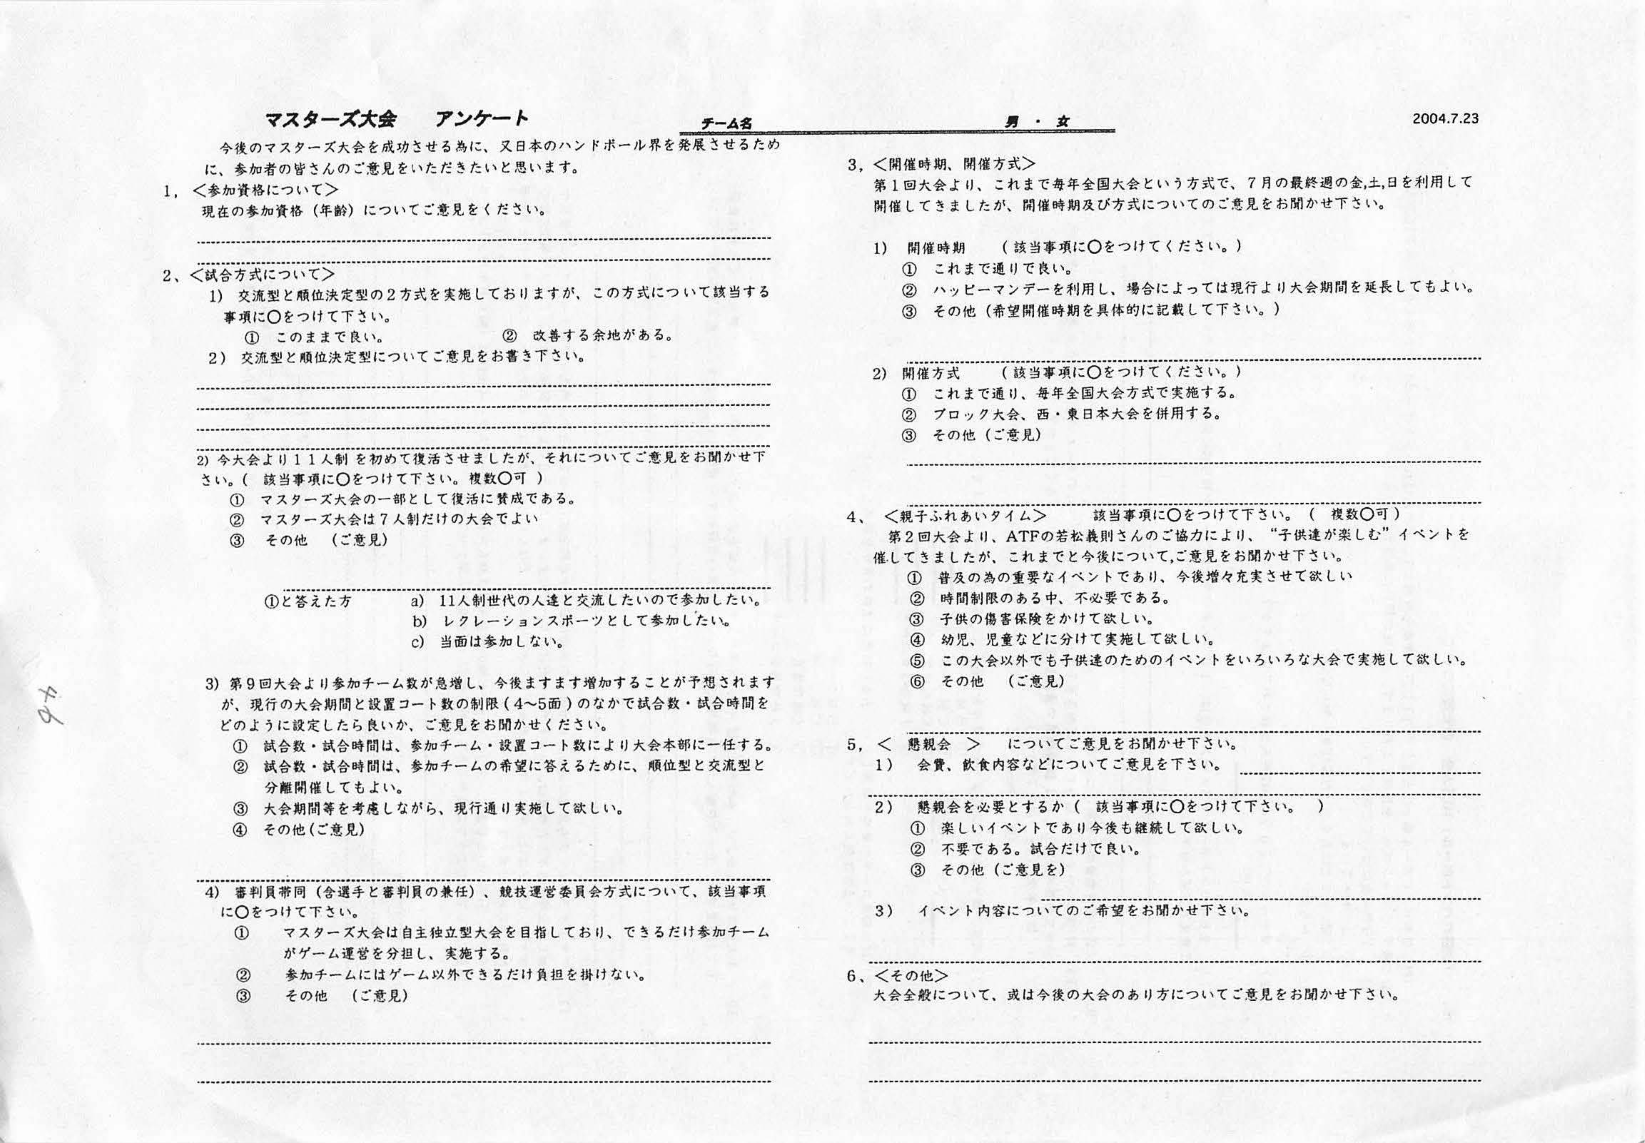 マスターズ大会　アンケート　チーム名　男・女　2004.7.23
今後のマスターズ大会を成功させる為に、又日本のハンドボール界を発展させるため
に、参加者の皆さんのご意見をいただきたいと思います。
1，＜参加資格について＞
現在の参加資格（年齢）についてご意見をください。
2、＜試合方式について＞
1） 交流型と順位決定型の2方式を実施しておりますが、この方式について該当する
事項に〇をつけて下さい。
① このままで良い。　② 改善する余地がある。
2） 交流型と順位決定型についてご意見をお書き下さい。
2) 今大会より11人制 を初めて復活させましたが、それについてご意見をお聞かせ下
さい。( 該当事項に〇をつけて下さい。複数〇可 )
① マスターズ大会の一部として復活に賛成である。
② マスターズ大会は7人制だけの大会でよい
③ その他 （ご意見）
①と答えた方　a) 11人制世代の人達と交流したいので参加したい。
b) レクレーションスポーツとして参加したい。
c) 当面は参加しない。
3) 第9回大会より参加チーム数が急増し、今後ますます増加することが予想されます
が、現行の大会期間と設置コート数の制限(4〜5面)のなかで試合数・試合時間を
どのように設定したら良いか、ご意見をお聞かせください。
① 試合数・試合時間は、参加チーム・設置コート数により大会本部に一任する。
② 試合数・試合時間は、参加チームの希望に答えるために、順位型と交流型と
分離開催してもよい。
③ 大会期間等を考慮しながら、現行通り実施して欲しい。
④ その他(ご意見)
4) 審判員帯同（含選手と審判員の兼任）、競技運営委員会方式について、該当事項
に〇をつけて下さい。
① マスターズ大会は自主独立型大会を目指しており、できるだけ参加チーム
がゲーム運営を分担し、実施する。
② 参加チームにはゲーム以外できるだけ負担を掛けない。
③ その他 （ご意見）
3，＜開催時期、開催方式＞
第1回大会より、これまで毎年全国大会という方式で、7月の最終週の金,土,日を利用して
開催してきましたが、開催時期及び方式についてのご意見をお聞かせ下さい。
1) 開催時期 （該当事項に〇をつけてください。）
① これまで通りで良い。
② ハッピーマンデーを利用し、場合によっては現行より大会期間を延長してもよい。
③ その他（希望開催時期を具体的に記載して下さい。）
2) 開催方式 （該当事項に〇をつけてください。）
① これまで通り、毎年全国大会方式で実施する。
② ブロック大会、西・東日本大会を併用する。
③ その他（ご意見）
4、＜親子ふれあいタイム＞ 該当事項に〇をつけて下さい。（ 複数〇可）
第2回大会より、ATFの若松義則さんのご協力により、“子供達が楽しむ”イベントを
催してきましたが、これまでと今後について,ご意見をお聞かせ下さい。
① 普及の為の重要なイベントであり、今後増々充実させて欲しい
② 時間制限のある中、不必要である。
③ 子供の傷害保険をかけて欲しい。
④ 幼児、児童などに分けて実施して欲しい。
⑤ この大会以外でも子供達のためのイベントをいろいろな大会で実施して欲しい。
⑥ その他 （ご意見）
5，＜ 懇親会 ＞ についてご意見をお聞かせ下さい。
1） 会費、飲食内容などについてご意見を下さい。
2） 懇親会を必要とするか（ 該当事項に〇をつけて下さい。 ）
① 楽しいイベントであり今後も継続して欲しい。
② 不要である。試合だけで良い。
③ その他（ご意見を）
3） イベント内容についてのご希望をお聞かせ下さい。
6、＜その他＞
大会全般について、或は今後の大会のあり方についてご意見をお聞かせ下さい。